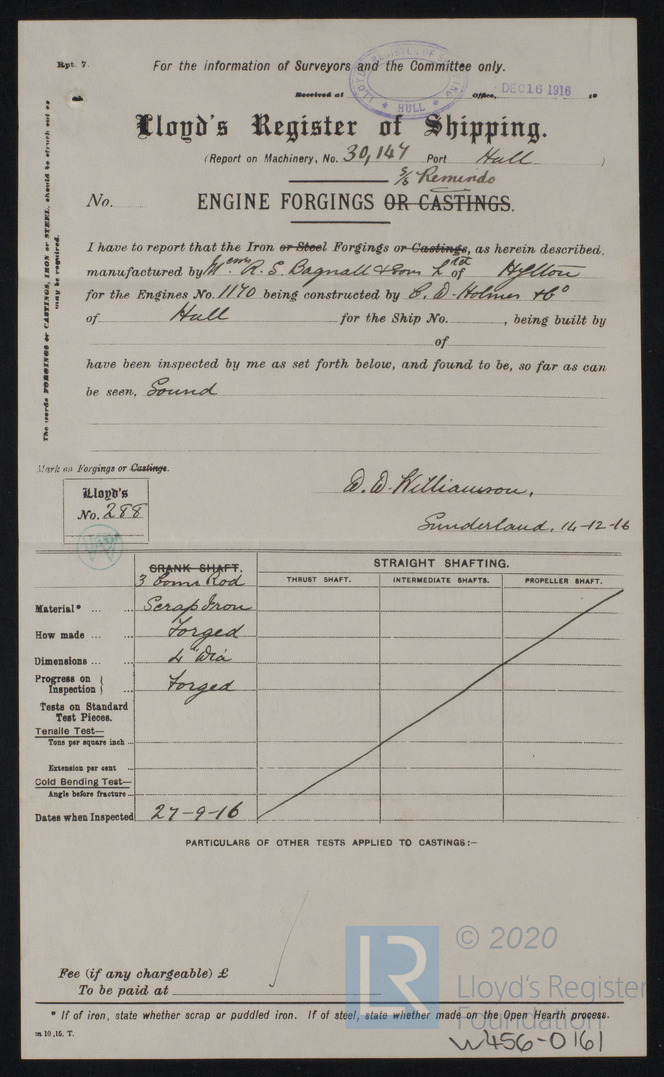 Rpt. 7.
For the information of Surveyors and the Committee only.
Received at Office, DEC 16 1916 19
LLOYD'S REGISTER OF SHIPPING
★ HULL ★
Lloyd's Register of Shipping.
(Report on Machinery, No. 30,147 Port Hull )
S/S Remindo
No. ENGINE FORGINGS OR CASTINGS.
I have to report that the Iron or Steel Forgings or Castings, as herein described,
manufactured by Messrs R. S. Bagnall & Sons Ltd of Hylton
for the Engines No. 1170 being constructed by C. D. Holmes & Co
of Hull for the Ship No. , being built by
of
have been inspected by me as set forth below, and found to be, so far as can
be seen, Sound
The words FORGINGS or CASTINGS, IRON or STEEL, should be struck out as
may be required.
Mark on Forgings or Castings.
Lloyd's
No. 288
D. D. Williamson.
Sunderland. 14-12-16
CRANK SHAFT. STRAIGHT SHAFTING.
3 Conn Rod THRUST SHAFT. INTERMEDIATE SHAFTS. PROPELLER SHAFT.
Material* ... ... Scrap Iron
How made ... ... Forged
Dimensions ... ... 4" Dia
Progress on
Inspection ... Forged
Tests on Standard
Test Pieces.
Tensile Test—
Tons per square inch ...
Extension per cent ...
Cold Bending Test—
Angle before fracture...
Dates when Inspected 27-9-16
PARTICULARS OF OTHER TESTS APPLIED TO CASTINGS:—
Fee (if any chargeable) £
To be paid at
* If of iron, state whether scrap or puddled iron. If of steel, state whether made on the Open Hearth process.
m 10,15. T.
LR
© 2020
Lloyd's Register
Foundation
W456-0161